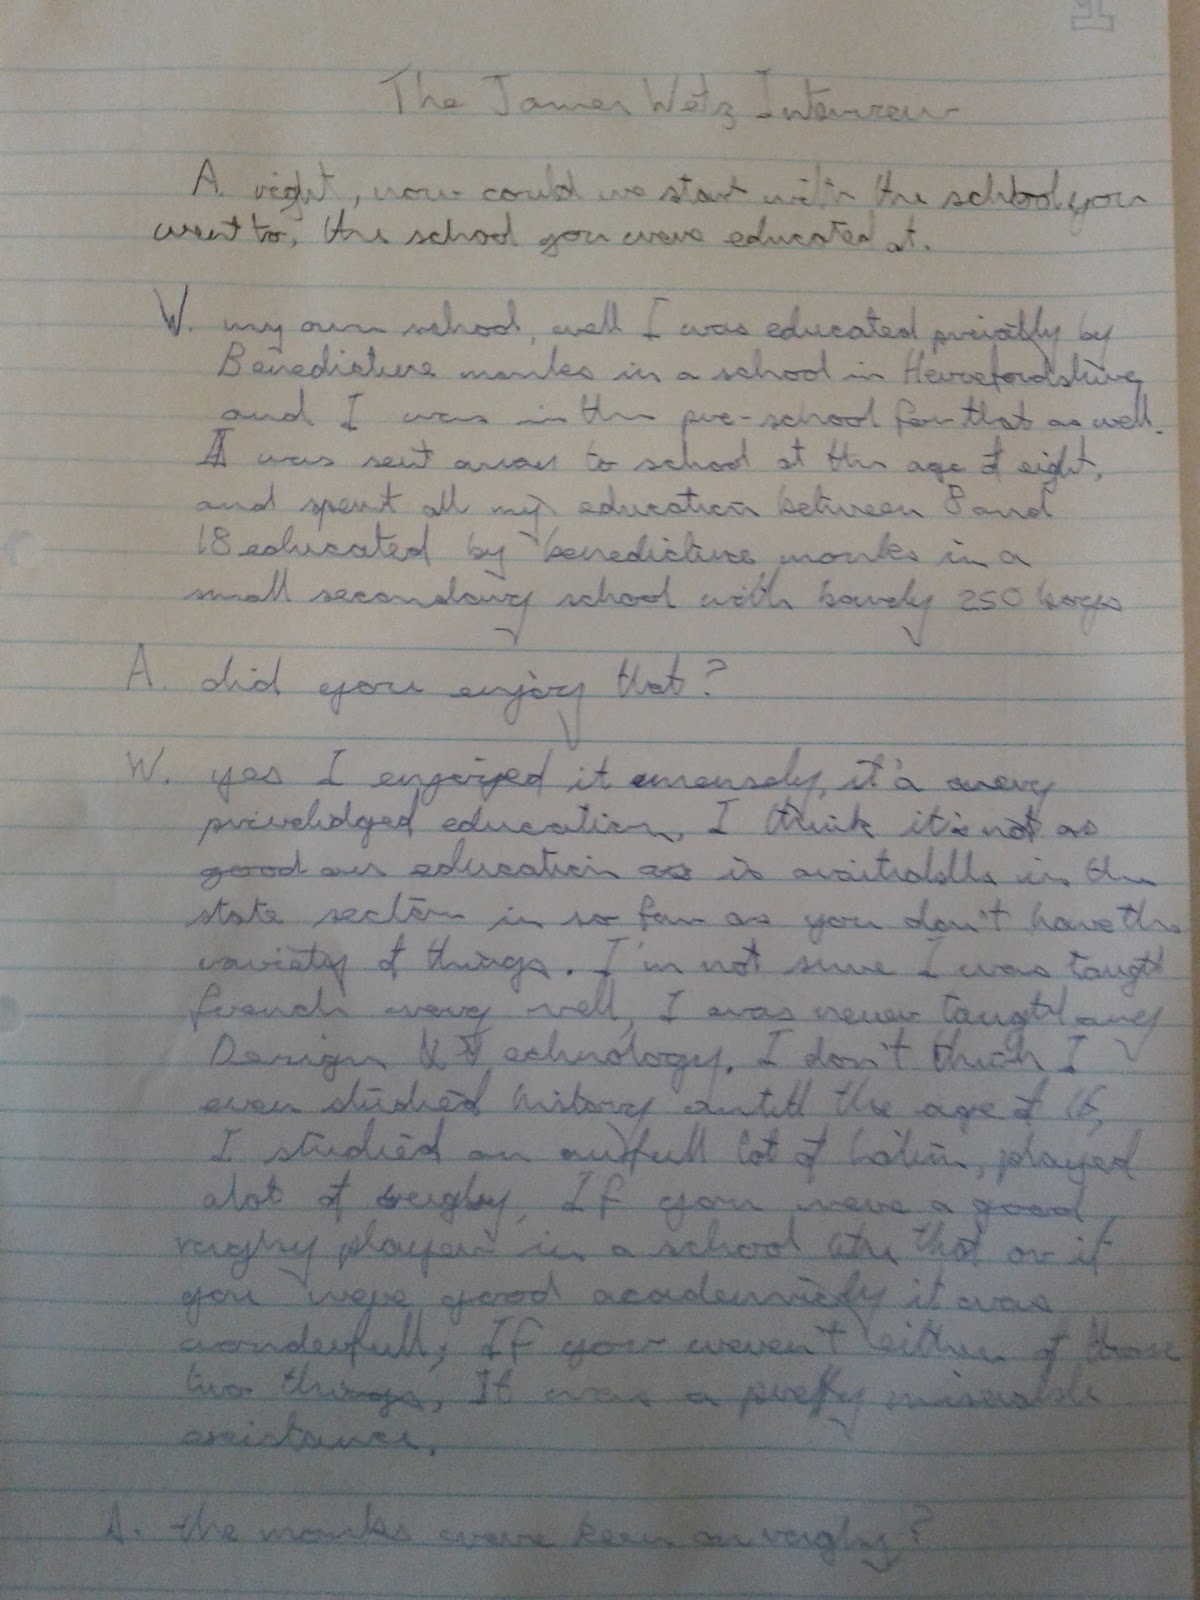 1
The James Wetz Interview
A. right, now could we start with the school you
went to, the school you were educated at.
W. my own school, well I was educated privatly by
Benedictine monks in a school in Herefordshire
and I was in the pre-school for that as well.
I was sent away to school at the age of eight,
and spent all my education between 8 and
18 educated by benedictine monks in a
small secondary school with barely 250 boys
A. did you enjoy that?
W. yes I enjoyed it emensely, it's a very
privelidged education, I think it's not as
good an education as is availablle in the
state section in so far as you don't have the
variety of things. I'm not sure I was taught
french very well, I was never taught any
Design & Technology. I don't think I
even studied history untill the age of 15,
I studied an awfull lot of latin, played
alot of rugby, If you were a good
rugby player in a school like that or if
you were good academicly it was
wonderfull, If you weren't either of those
two things, It was a pretty miserable
existance.
A. the monks were keen on rugby?